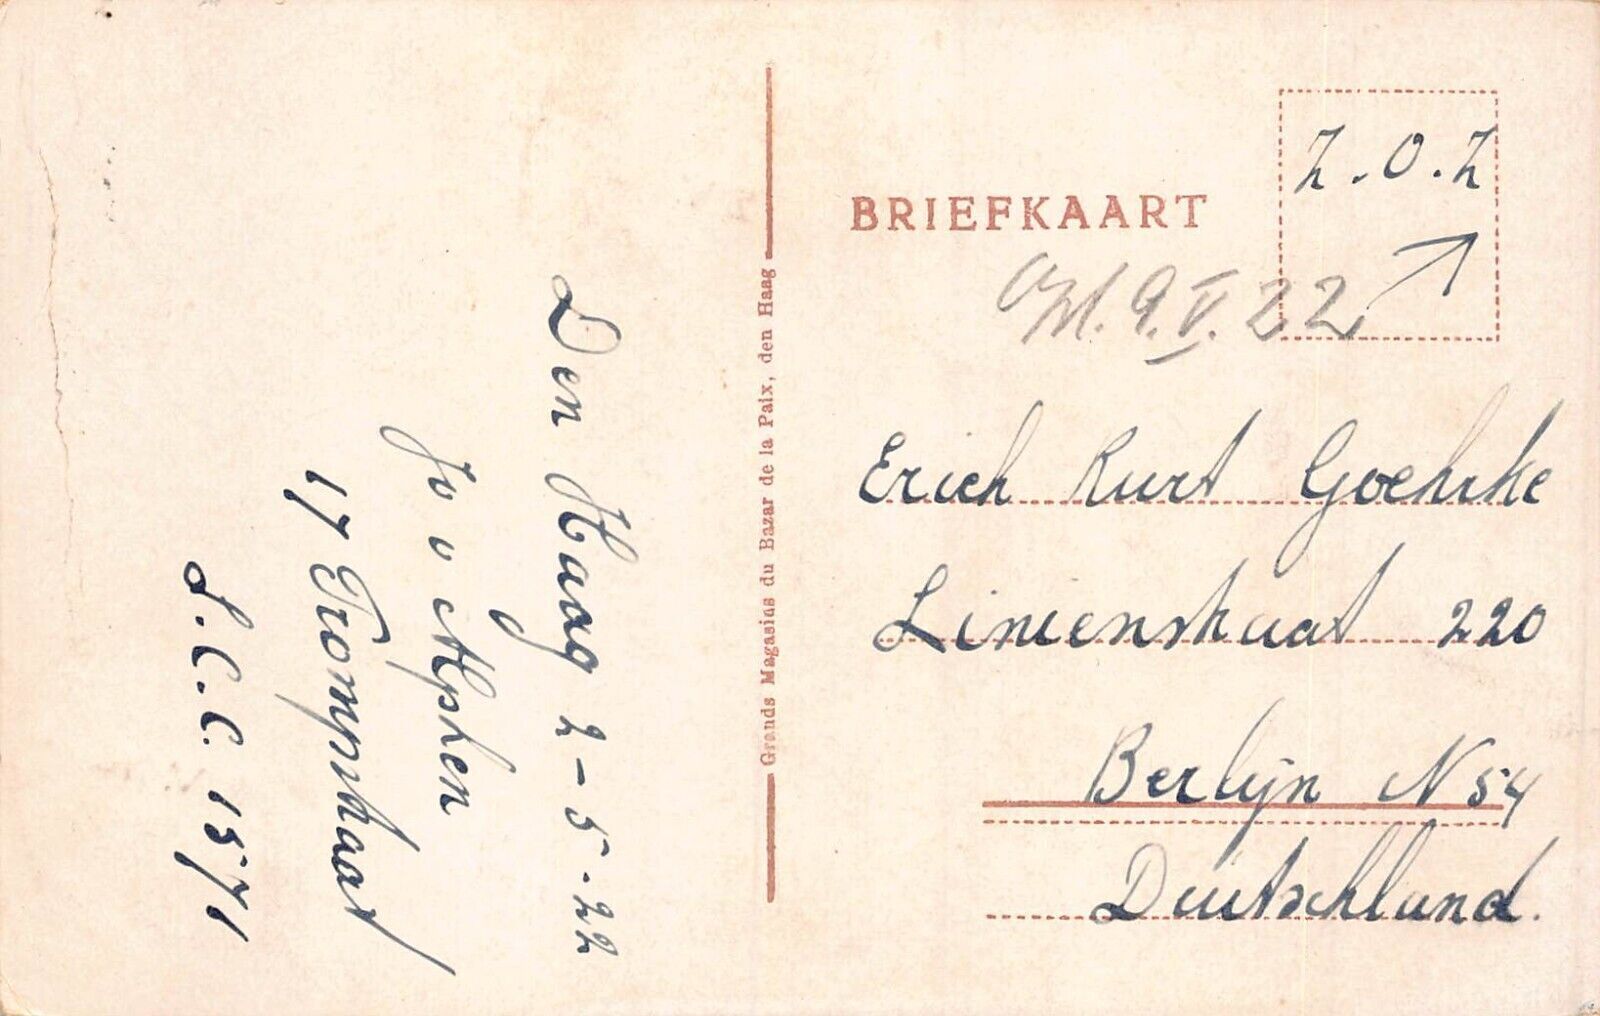 Den Haag 2-5-22
Jo v Alphen
17 Trompstraat
L.C.C. 1571
Grands Magasins du Bazar de la Paix, den Haag
BRIEFKAART
Z.O.Z
9.V.22
Erich Kurt Goehrke
Linienstraat 220
Berlijn N 54
Deutschland.